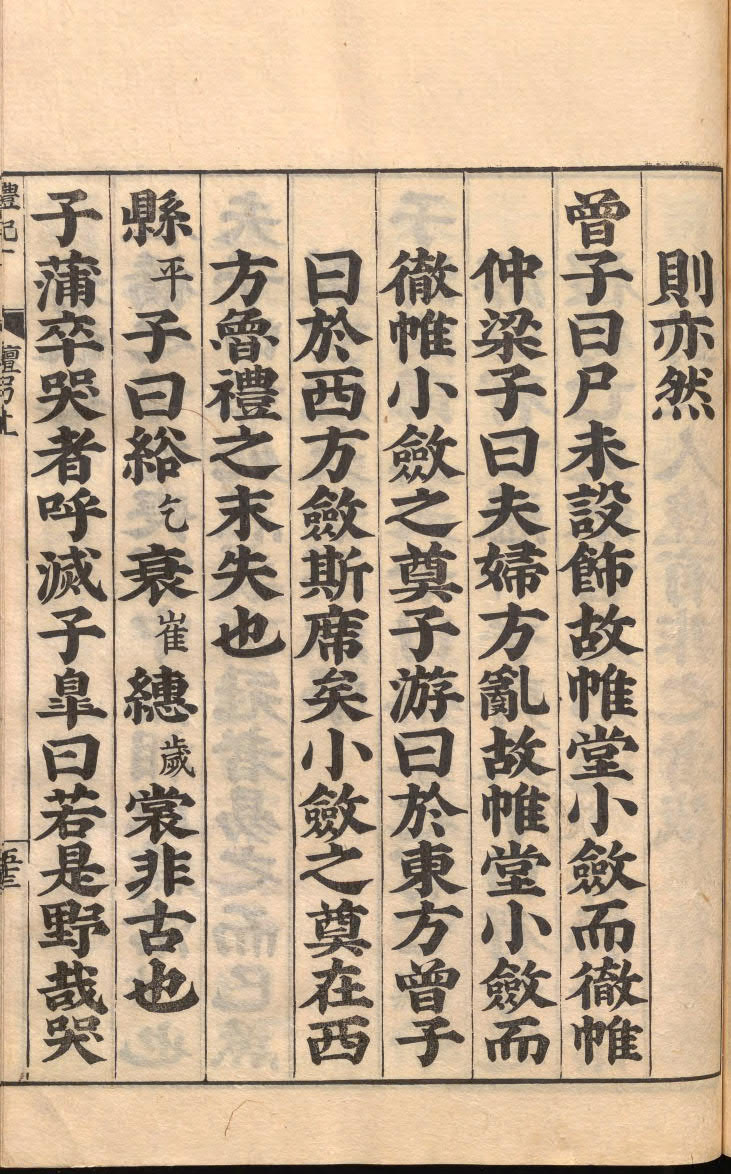 則亦然
曾子曰尸未設飾故帷堂小斂而徹帷
仲梁子曰夫婦方亂故帷堂小斂而
徹帷小斂之奠子游曰於東方曾子
曰於西方斂斯席矣小斂之奠在西
方魯禮之末失也
縣平子曰綌乞衰崔繐歲裳非古也
子蒲卒哭者呼滅子臯曰若是野哉哭
禮記一
檀弓上